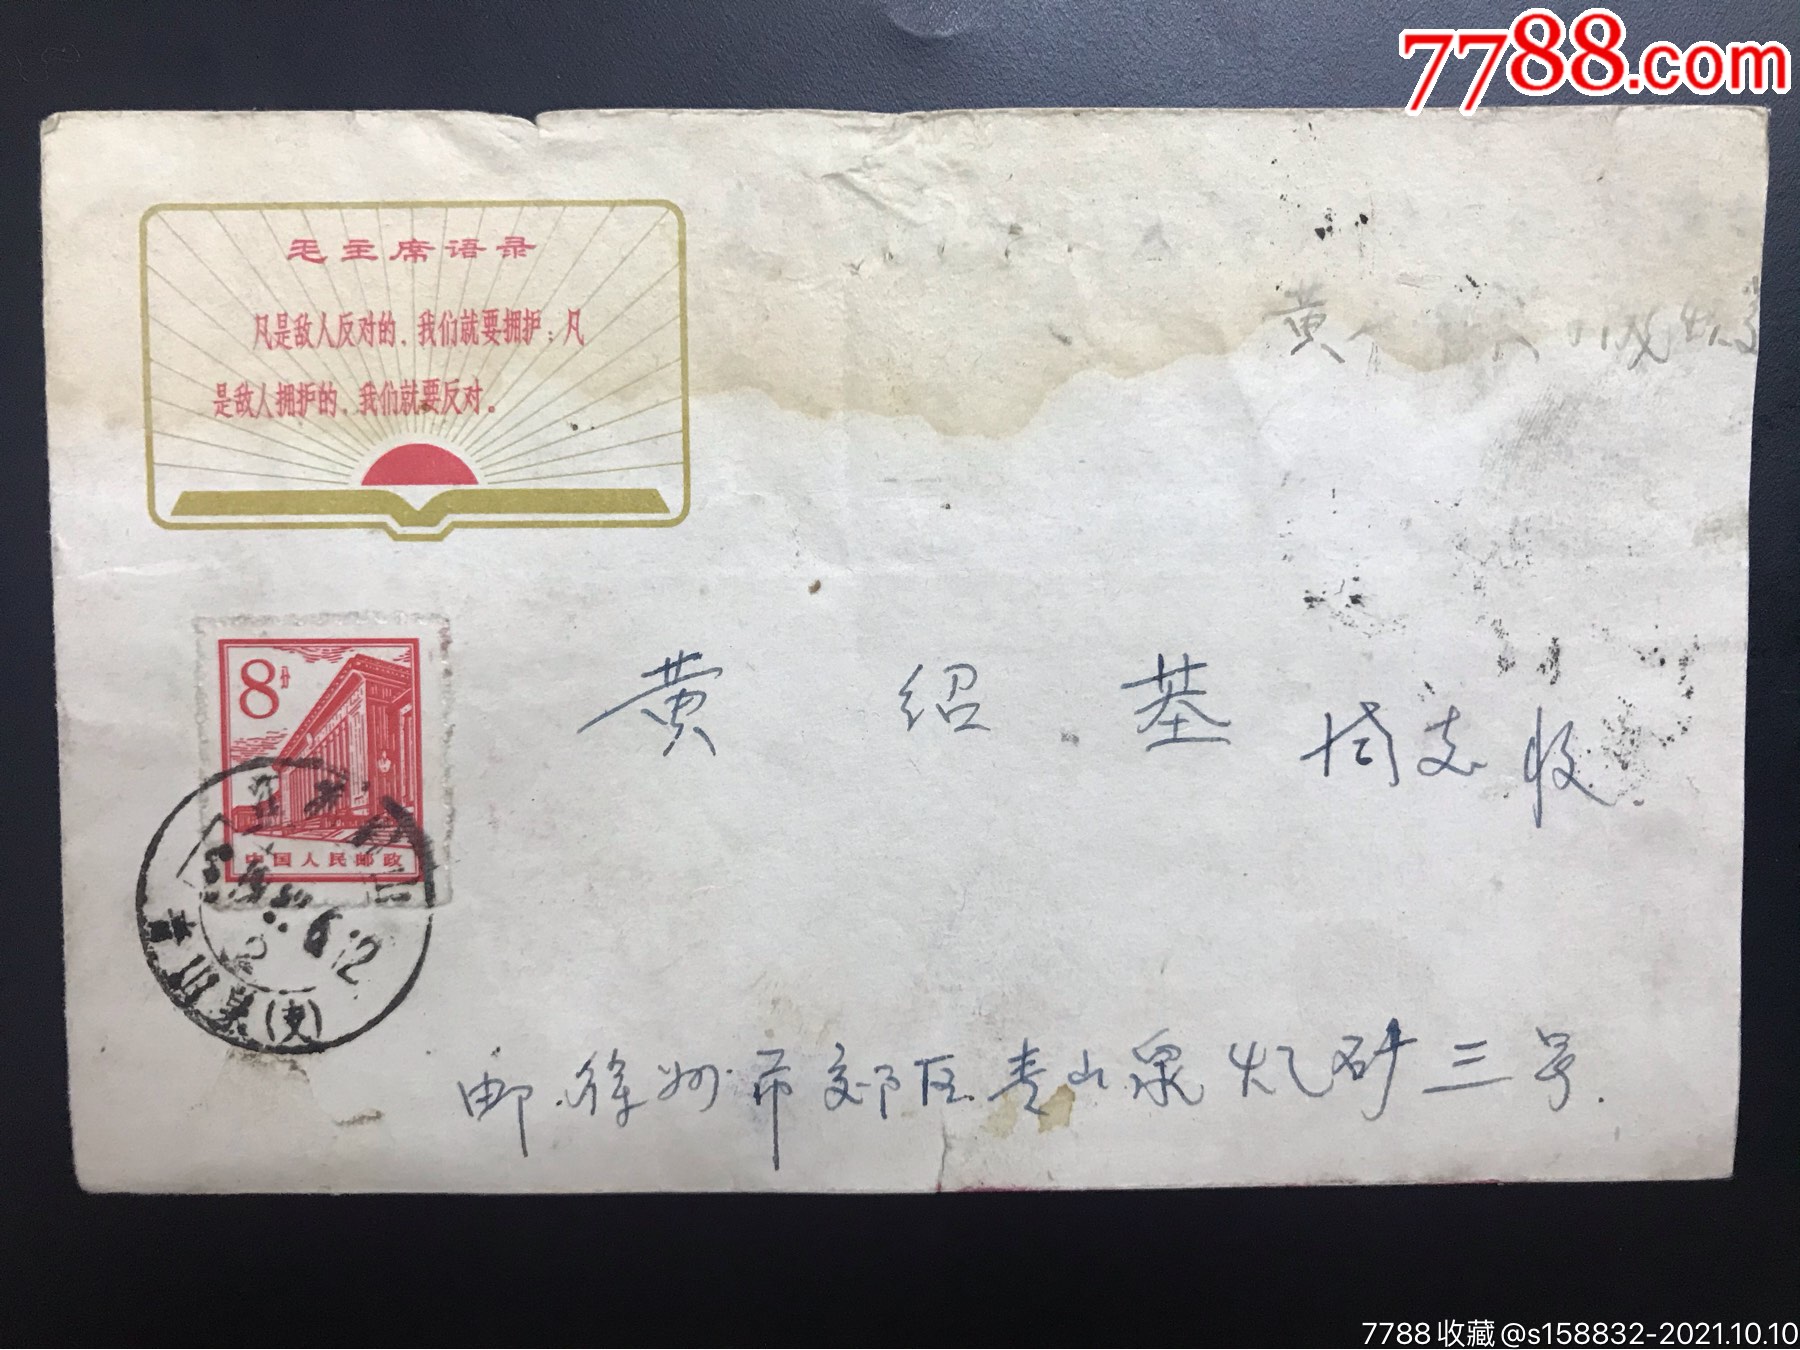 7788.com
毛主席语录
凡是敌人反对的，我们就要拥护；凡
是敌人拥护的，我们就要反对。
黄
8分
中国人民邮政
黄绍基 同志收
6.12
(支)
邮.徐州市郊区青山泉火石矿三号.
7788收藏@s158832-2021.10.10